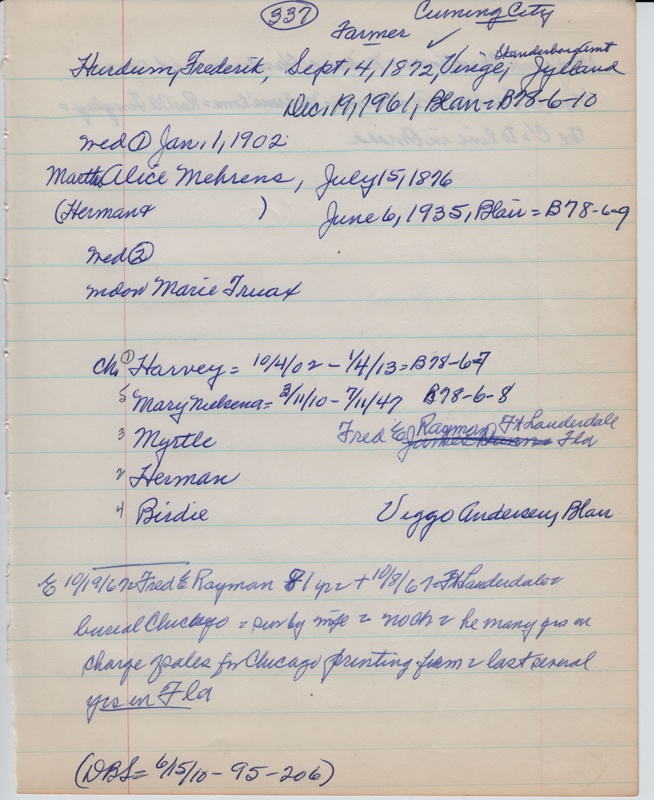 337
Cuming City
Farmer
Hurdum, Frederik, Sept. 4, 1872, Virige, Skanderborg Amt Jylland
Dec. 19, 1961, Blair = B78-6-10
wed ① Jan. 1, 1902
Martha Alice Mehrens, July 15, 1876
(Herman & ) June 6, 1935, Blair = B78-6-9
wed ②
Marie Truax
Ch. ① Harvey = 10/4/02 - 1/4/13 = B78-6-7
5 Mary Nielsena = 3/11/10 - 7/11/47 B78-6-8
3 Myrtle Fred E. Rayman, Ft Lauderdale Fla
2 Herman
4 Birdie Viggo Andersen, Blair
E 10/19/67 = Fred E Rayman 81 yrs + 10/8/67 = Ft Lauderdale =
burial Chicago = sur by wife = no ch = he many yrs in
charge of sales for Chicago printing firm = last several
yrs in Fla
(DBS = 6/15/10 - 95 - 206)